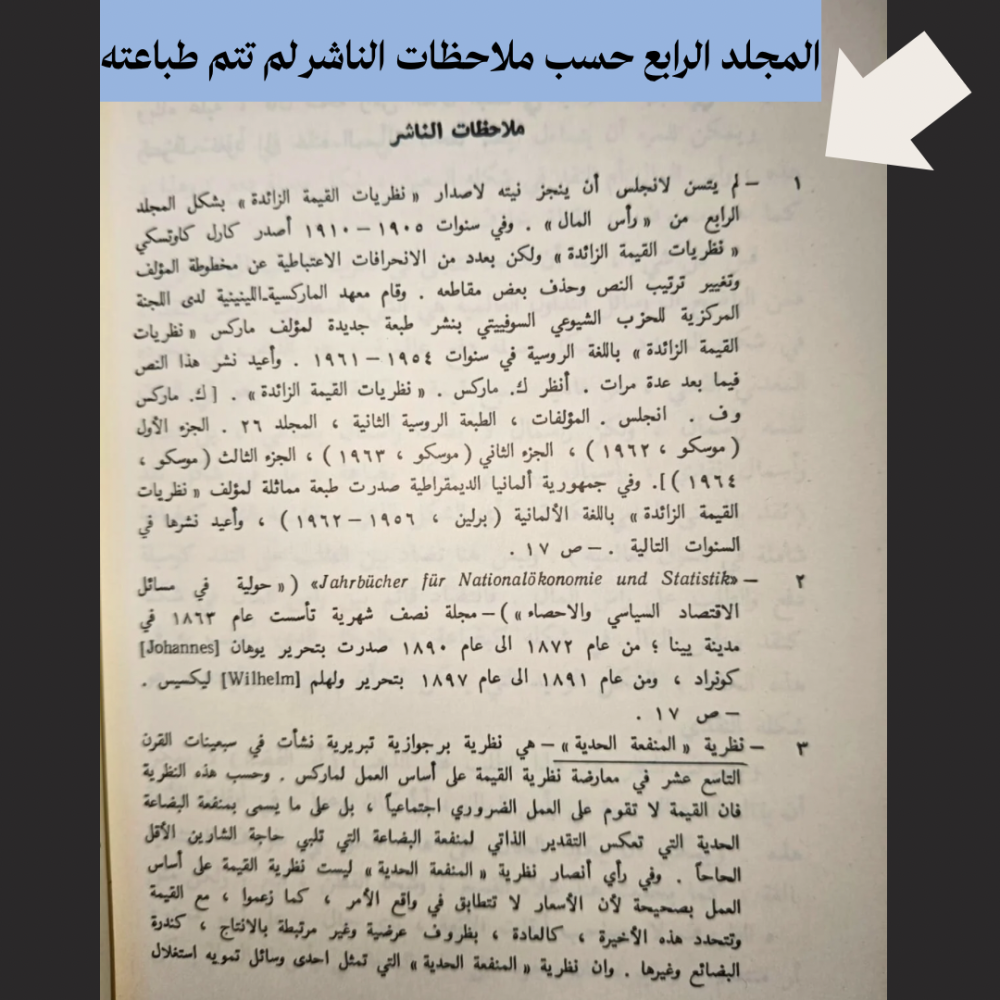 المجلد الرابع حسب ملاحظات الناشر لم تتم طباعته
ملاحظات الناشر
١ – لم يتسن لانجلس أن ينجز نيته لاصدار « نظريات القيمة الزائدة » بشكل المجلد
الرابع من « رأس المال » . وفي سنوات ١٩٠٥ – ١٩١٠ أصدر كارل كاوتسكي
« نظريات القيمة الزائدة » ولكن بعدد من الانحرافات الاعتباطية عن مخطوطة المؤلف
وتغيير ترتيب النص وحذف بعض مقاطعه . وقام معهد الماركسية-اللينينية لدى اللجنة
المركزية للحزب الشيوعي السوفييتي بنشر طبعة جديدة لمؤلف ماركس « نظريات
القيمة الزائدة » باللغة الروسية في سنوات ١٩٥٤ – ١٩٦١ . وأعيد نشر هذا النص
فيما بعد عدة مرات . أنظر ك. ماركس . « نظريات القيمة الزائدة » . [ ك. ماركس
و ف . انجلس . المؤلفات ، الطبعة الروسية الثانية ، المجلد ٢٦ . الجزء الأول
( موسكو ، ١٩٦٢ ) ، الجزء الثاني ( موسكو ، ١٩٦٣ ) ، الجزء الثالث ( موسكو ،
١٩٦٤ ) ]. وفي جمهورية ألمانيا الديمقراطية صدرت طبعة مماثلة لمؤلف « نظريات
القيمة الزائدة » باللغة الألمانية ( برلين ، ١٩٥٦ – ١٩٦٢ ) ، وأعيد نشرها في
السنوات التالية . – ص ١٧ .
٢ – «Jahrbücher für Nationalökonomie und Statistik» ( « حولية في مسائل
الاقتصاد السياسي والاحصاء » ) – مجلة نصف شهرية تأسست عام ١٨٦٣ في
مدينة يينا ؛ من عام ١٨٧٢ الى عام ١٨٩٠ صدرت بتحرير يوهان [Johannes]
كونراد ، ومن عام ١٨٩١ الى عام ١٨٩٧ بتحرير ولهلم [Wilhelm] ليكسيس .
– ص ١٧ .
٣ – نظرية « المنفعة الحدية » – هي نظرية برجوازية تبريرية نشأت في سبعينات القرن
التاسع عشر في معارضة نظرية القيمة على أساس العمل لماركس . وحسب هذه النظرية
فان القيمة لا تقوم على العمل الضروري اجتماعياً ، بل على ما يسمى بمنفعة البضاعة
الحدية التي تعكس التقدير الذاتي لمنفعة البضاعة التي تلبي حاجة الشارين الأقل
الحاحاً . وفي رأي أنصار نظرية « المنفعة الحدية » ليست نظرية القيمة على أساس
العمل بصحيحة لأن الأسعار لا تتطابق في واقع الأمر ، كما زعموا ، مع القيمة
وتتحدد هذه الأخيرة ، كالعادة ، بظروف عرضية وغير مرتبطة بالانتاج ، كندرة
البضائع وغيرها . وان نظرية « المنفعة الحدية » التي تمثل احدى وسائل تمويه استغلال